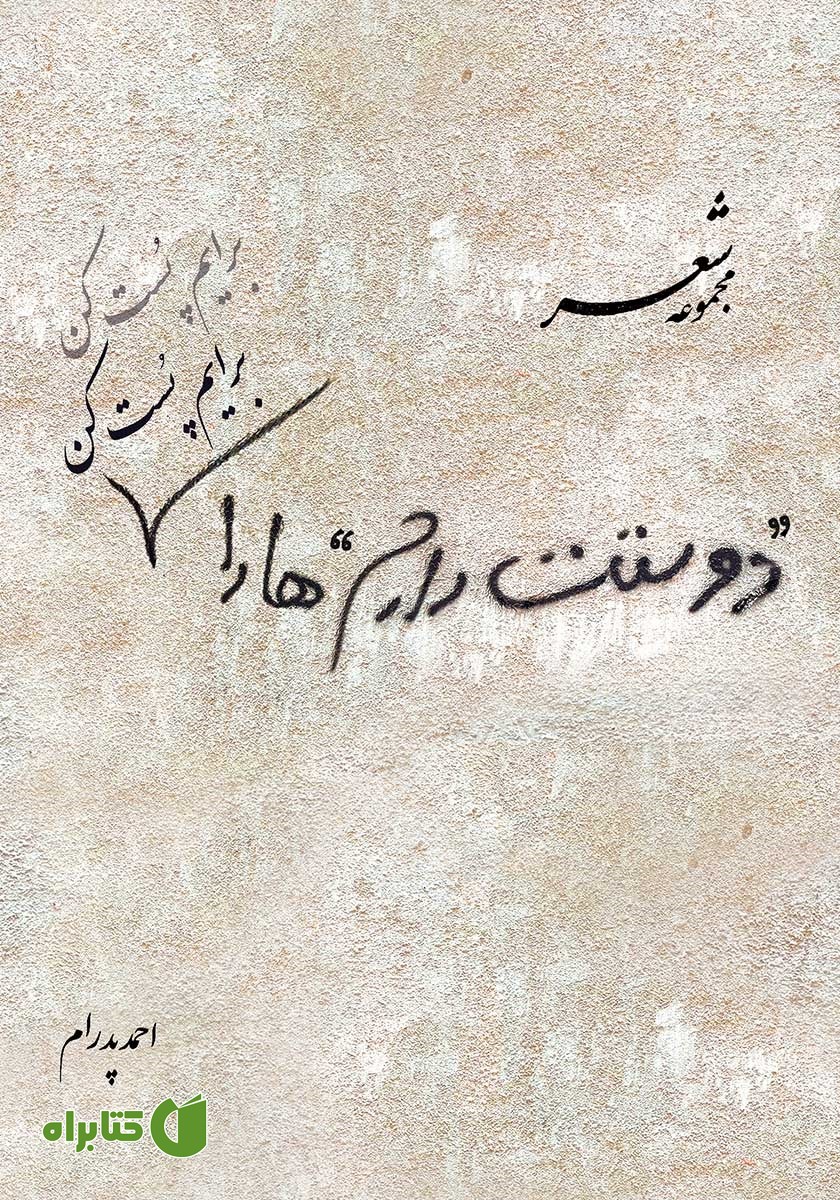 مجموعه شعر
برایم پُست کن
برایم پُست کن
”دوستت دارم“ ها را
احمد پدرام
کتابراه